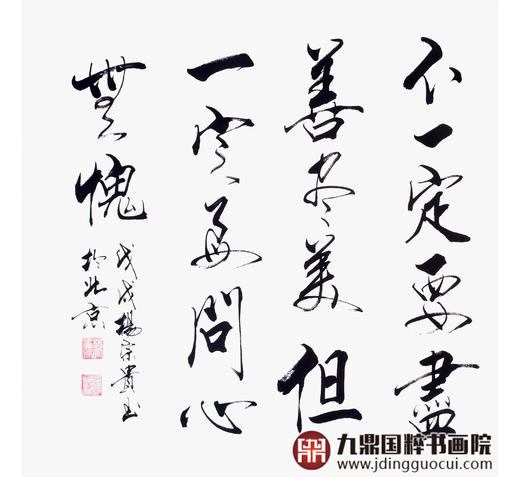 不一定要盡
善尽美但
一定要問心
無愧
戊戌楊宗貴書
於北京
九鼎国粹书画院
www.jdingguocui.com